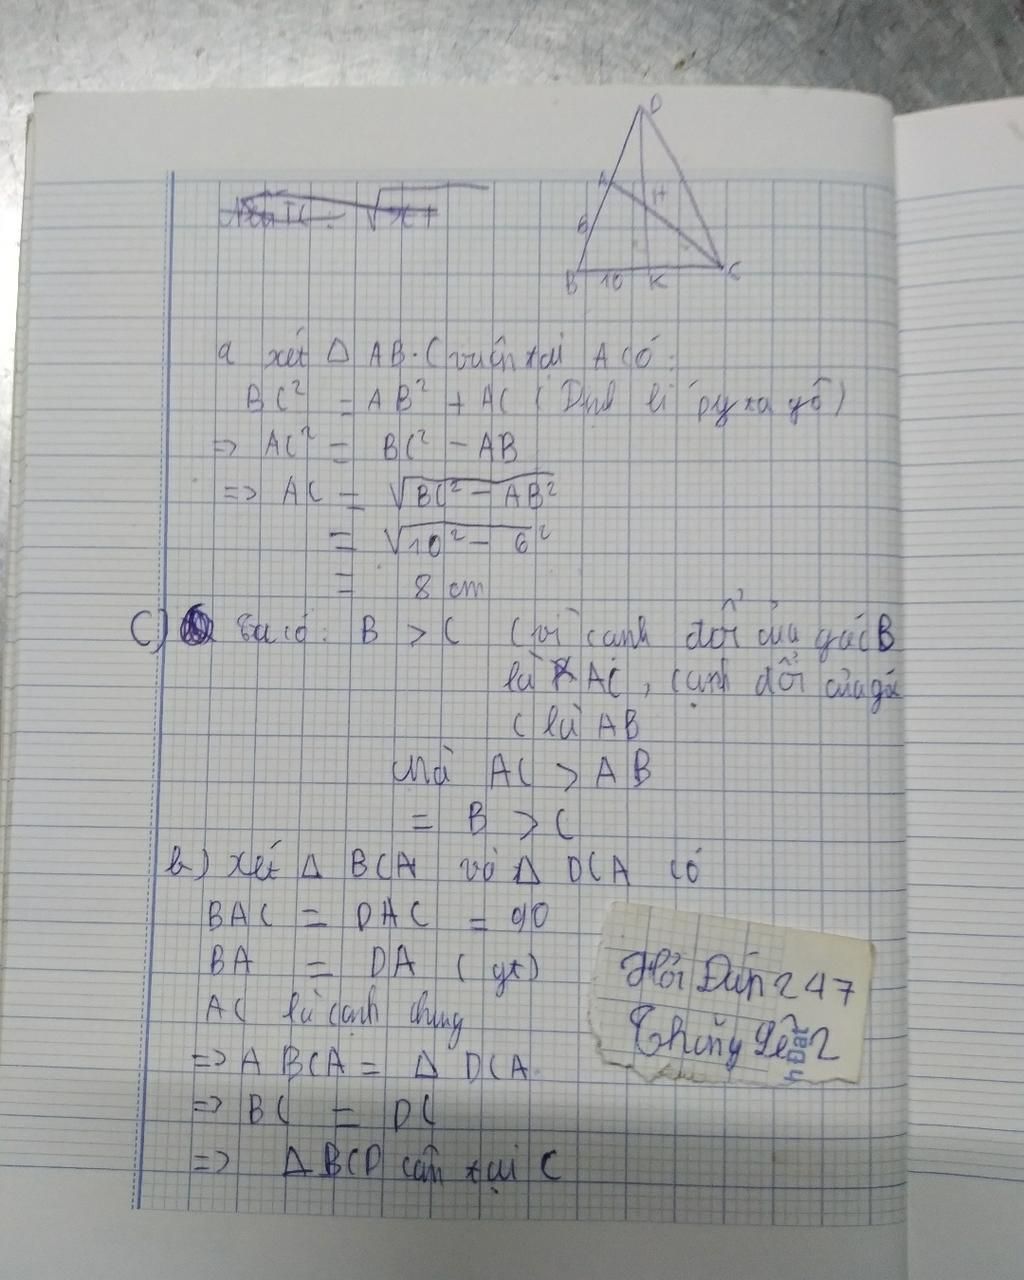 D
A
H
6
B 10 K C
a xét Δ AB.C vuông tại A có:
BC² = AB² + AC (Định lí pytago)
=> AC² = BC² - AB
=> AC = √BC² - AB²
= √10² - 6²
= 8 cm
C) Ta có: B > C (vì cạnh đối của góc B
là AC, cạnh đối của góc
C là AB
mà AC > AB
= B > C
b) Xét Δ BCA và Δ DCA có
BAC = DAC = 90
BA = DA (gt)
AC là cạnh chung
=> Δ BCA = Δ DCA
=> BC = DC
=> Δ BCD cân tại C
Hỏi Đáp 247